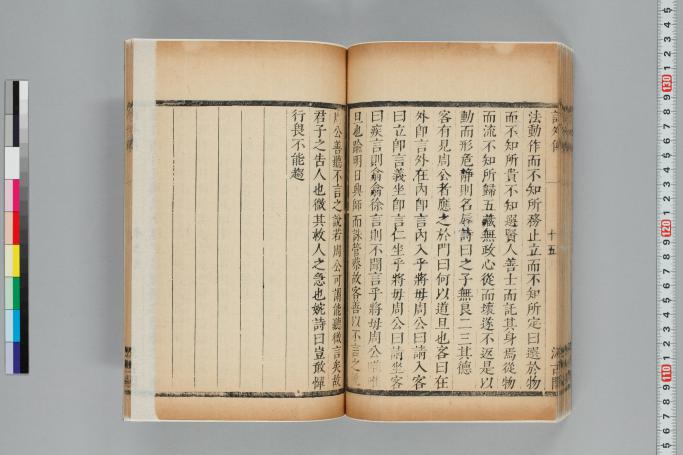 法動作而不知所務止立而不知所定曰選於物
而不知所貴不知選賢人善士而託其身焉從物
而流不知所歸五藏無政心從而壞遂不返是以
動而形危靜則名辱詩曰之子無良二三其德
客有見周公者應之於門曰何以道旦也客曰在
外即言外在內即言內入乎將毋周公曰請入客
曰立即言義坐即言仁坐乎將毋周公曰請坐客
曰疾言則翕翕徐言則不聞言乎將毋周公
旦也踰明日興師而誅管蔡故客善以不言之
周公善聽不言之說若周公可謂能聽微言矣故
君子之告人也微其救人之急也婉詩曰豈敢憚
行畏不能趨
十五
5 4 3 2 1 130 9 8 7 6 5 4 3 2 1 120 9 8 7 6 5 4 3 2 1 110 9 8 7 6 5